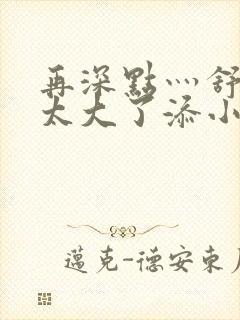 再深點灬舒
太大了添小
邁克-德安東